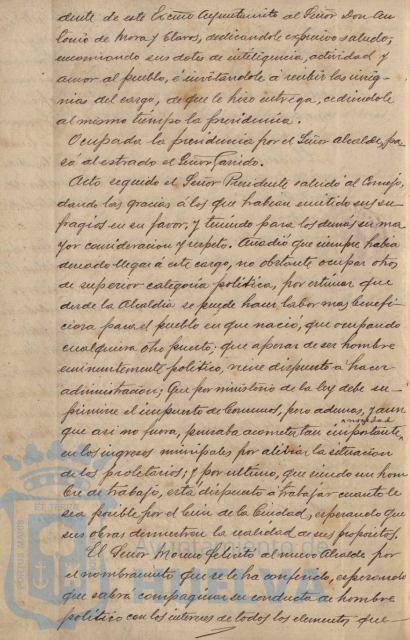 dente de este Excmo Ayuntamito al Señor Don An-
tonio de Mora y Claros, dedicándole expresivo saludo,
encomiando sus dotes de inteligencia, actividad y
amor al pueblo, é invitándole á recibir las insig-
nias del cargo, de que le hizo entrega, cediéndole
al mismo tiempo la presidencia.
Ocupada la presidencia por el Señor Alcalde, pa-
só al estrado el Señor Garrido.
Acto seguido el Señor Presidente saludó al Concejo,
dando las gracias á los que habian emitido sus su-
fragios en su favor, y teniendo para los demás su ma-
yor consideracion y respeto. Añadió que siempre habia
deseado llegar á este cargo, no obstante ocupar otros
de superior categoria política, por estimar que
desde la Alcaldia se puede hacer labor mas benefi-
ciosa para el pueblo en que nació, que ocupando
cualquiera otro puesto; que apesar de ser hombre
eminentemente político, viene dispuesto á hacer
administracion; que por ministerio de la ley debe su-
primirse el impuesto de Consumos, pero ademas, y aun
que asi no fuera, pensaba acometer tan importante
novedad
en los ingresos municipales por aliviar la situacion
de los proletarios; y por último, que siendo un hom-
bre de trabajo, está dispuesto á trabajar cuanto le
sea posible por el bien de la Ciudad, esperando que
sus obras demuestren la realidad de sus propósitos.
El Señor Moreno felicitó al nuevo Alcalde por
el nombramiento que se le ha conferido, esperando
que sabrá compaginar su conducta de hombre
político con los intereses de todos los elementos que
PORTUS MARIS